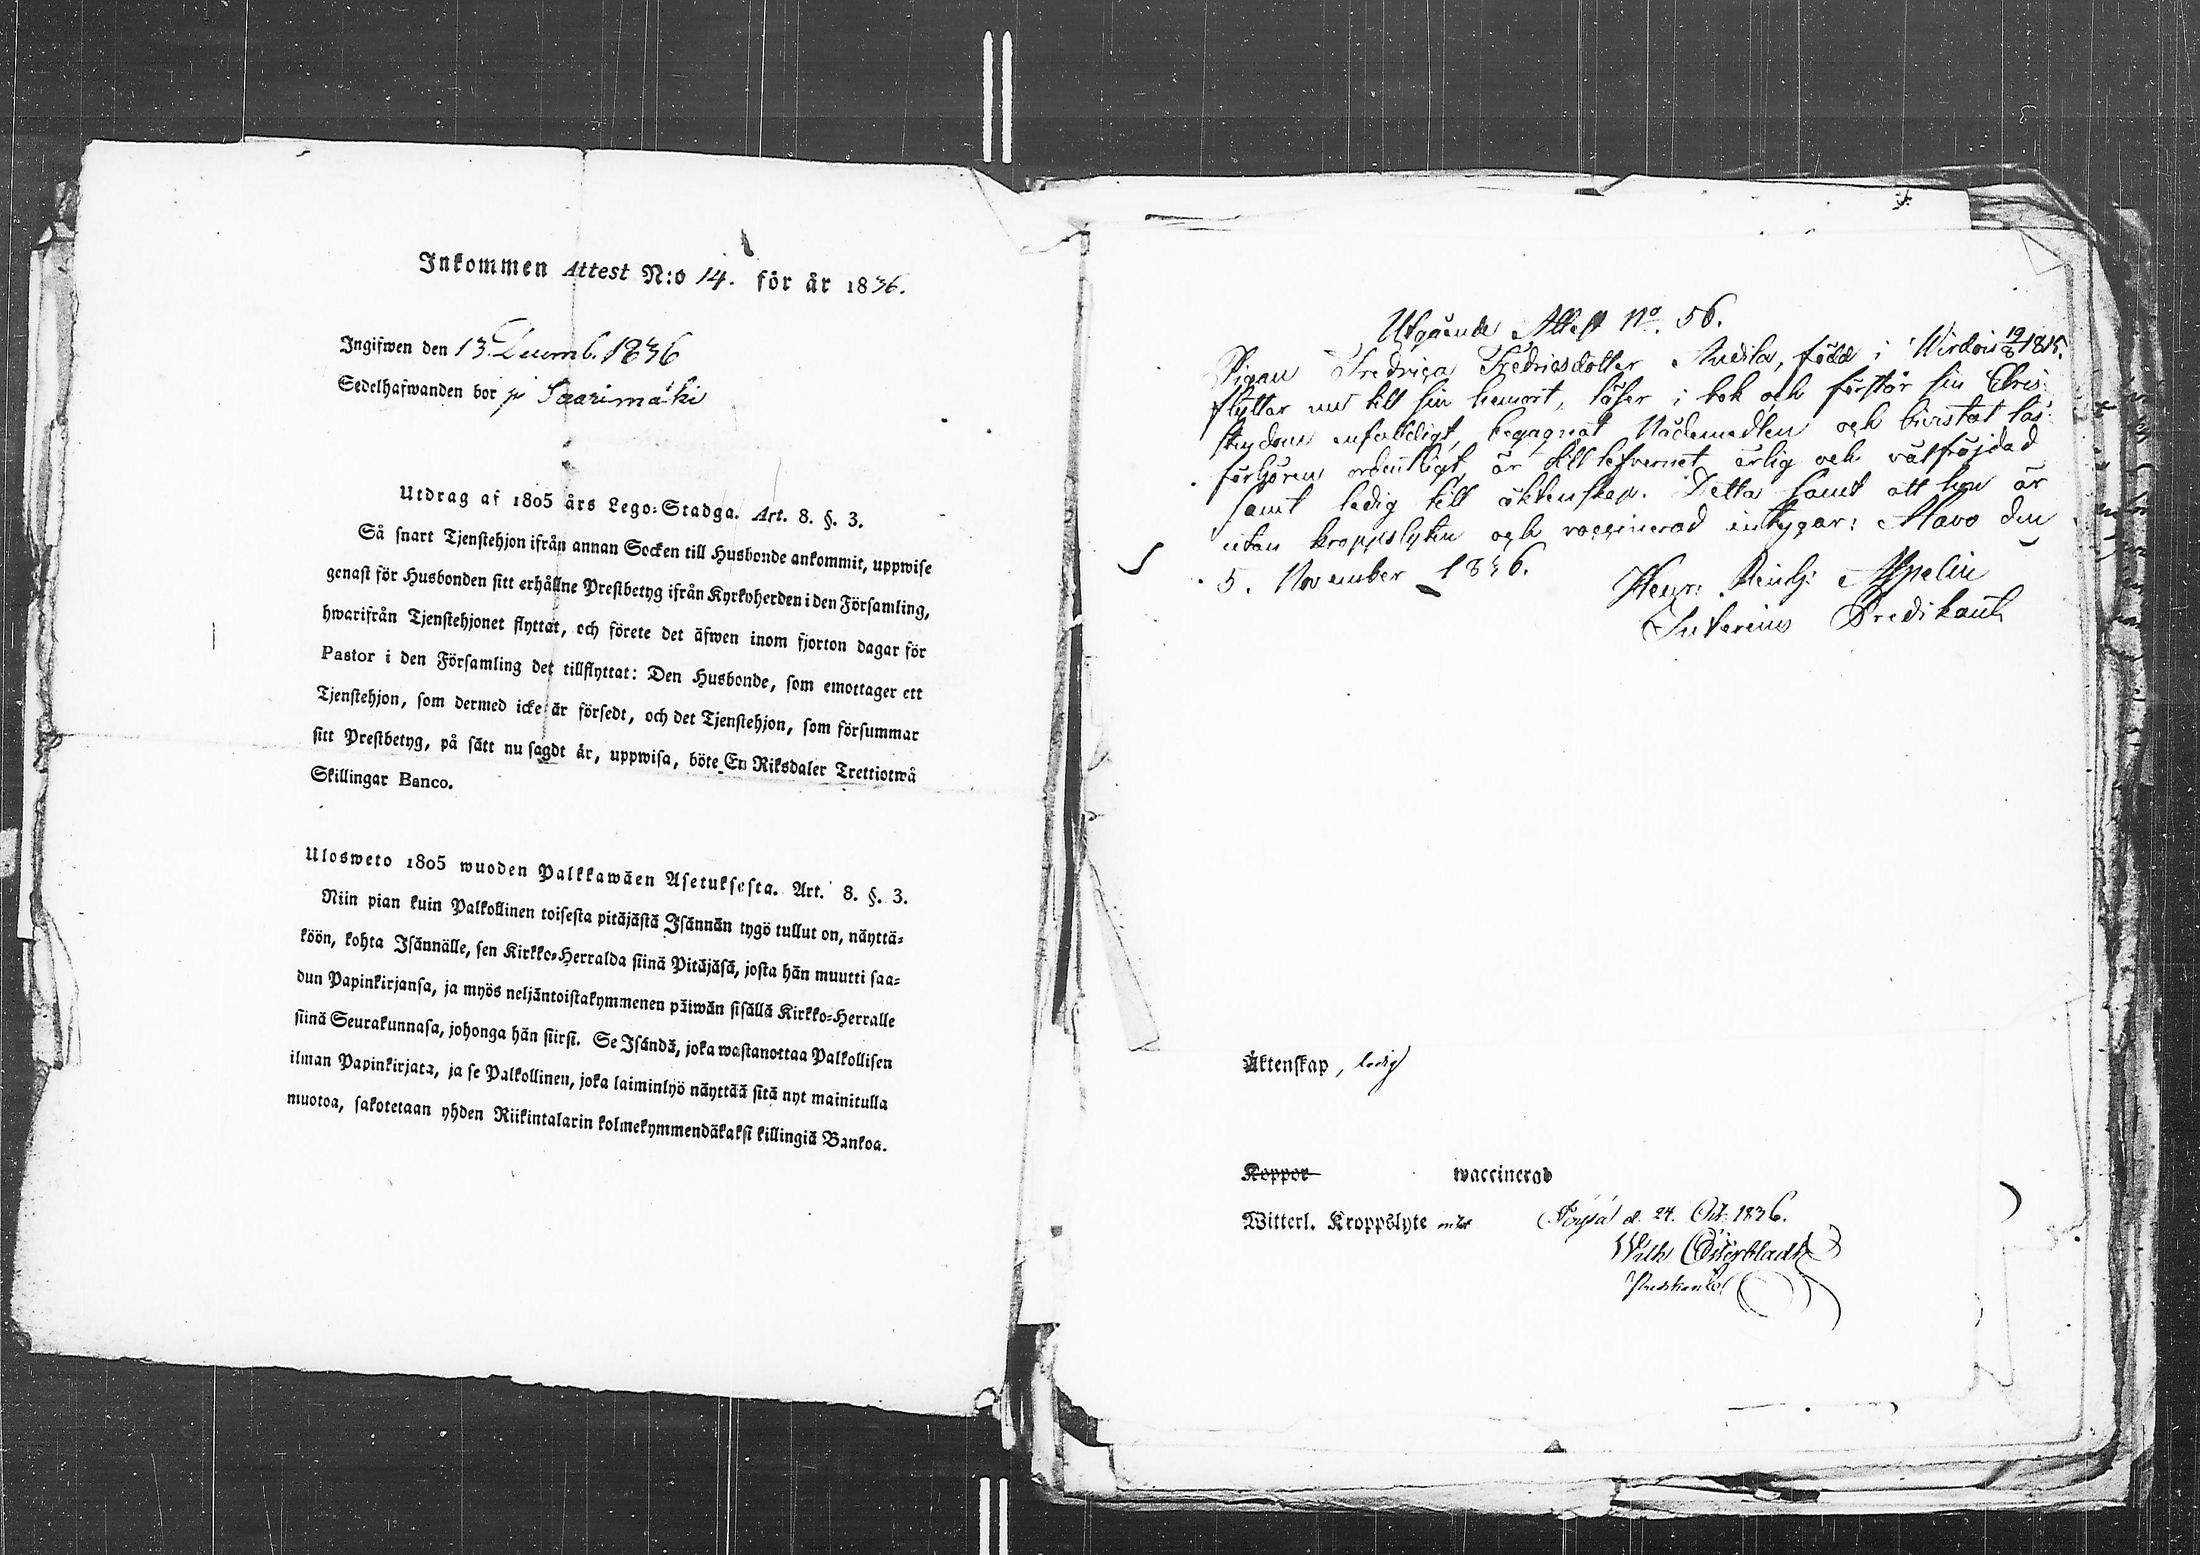 Inkommen Attest N:o 14. för år 1836.
Ingifwen den 13 Decemb. 1836
Sedelhafwanden bor på Saarimäki
Utdrag af 1805 års Lego-Stadga. Art. 8. §. 3.
Så snart Tjenstehjon ifrån annan Socken till Husbonde ankommit, uppwise
genast för Husbonden sitt erhållne Prestbetyg ifrån Kyrkoherden i den Församling,
hwarifrån Tjenstehjonet flyttat, och förete det äfwen inom fjorton dagar för
Pastor i den Församling det tillflyttat: Den Husbonde, som emottager ett
Tjenstehjon, som dermed icke är försedt, och det Tjenstehjon, som försummar
sitt Prestbetyg, på sätt nu sagdt är, uppwisa, böte En Riksdaler Trettiotwå
Skillingar Banco.
Ulosweto 1805 wuoden Palkkawäen Asetuksesta. Art. 8. §. 3.
Niin pian kuin Palkollinen toisesta pitäjästä Isännän tygö tullut on, näyttä-
köön, kohta Isännälle, sen Kirkko-Herralda siinä Pitäjäsä, josta hän muutti saa-
dun Papinkirjansa, ja myös neljäntoistakymmenen päiwän sisällä Kirkko-Herralle
siinä Seurakunnasa, johonga hän siirsi. Se Isändä, joka wastanottaa Palkollisen
ilman Papinkirjata, ja se Palkollinen, joka laiminlyö näyttää sitä nyt mainitulla
muotoa, sakotetaan yhden Riikintalarin kolmekymmendäkaksi killingiä Bankoa.
Utgående Attest No. 56.
Pigan Fredrica Fredricsdotter Andila, född i Wirdois 19/8 1815.
flyttar nu till sin hemort, läser i bok och förstår sin Chris-
tendom enfaldigt, begagnat Nådemedlen och bivistat läs-
förhören ordentligt, är till lefvernet ärlig och välfrejdad
samt ledig till äktenskap. Detta samt att hon är
utan kroppslyten och vaccinerad intygar: Alavo den
5. November 1836.
Henr: Reinh: Appelin
Interims Predikant
Äktenskap, ledig
Koppor waccinerad
Witterl. Kroppslyte utan Töysä d. 24. Oct. 1836.
Wilh Österbladh
Predikant